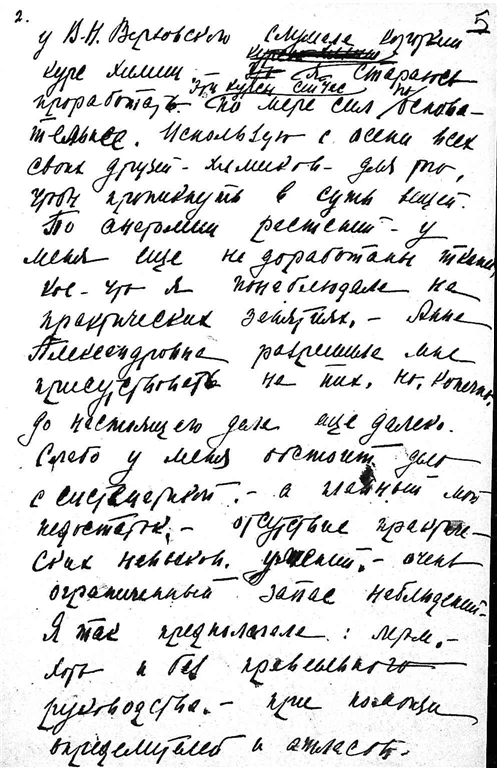 2.
5
у В.Н. Верховского слушала короткий
курс химии я стараюсь
эти курсы сейчас
проработать по мере сил поосновательнее
тельнее. Использую с осени всех
своих друзей - химиков - для того,
чтоб проникнуть в суть вещей.
По анатомии растений - у
меня еще не доработаны ткани
кое-что я понаблюдала на
практических занятиях. - Анна
Александровна разрешила мне
присутствовать на них. Но, конечно,
до настоящего дела еще далеко.
Слабо у меня обстоит дело
с систематикой. - а главный мой
недостаток, - отсутствие практиче-
ских навыков. умений. - очень
ограниченный запас наблюдений -
Я так предполагала: летом. -
хоть и без правильного
руководства. - при помощи
определителей и атласов. -